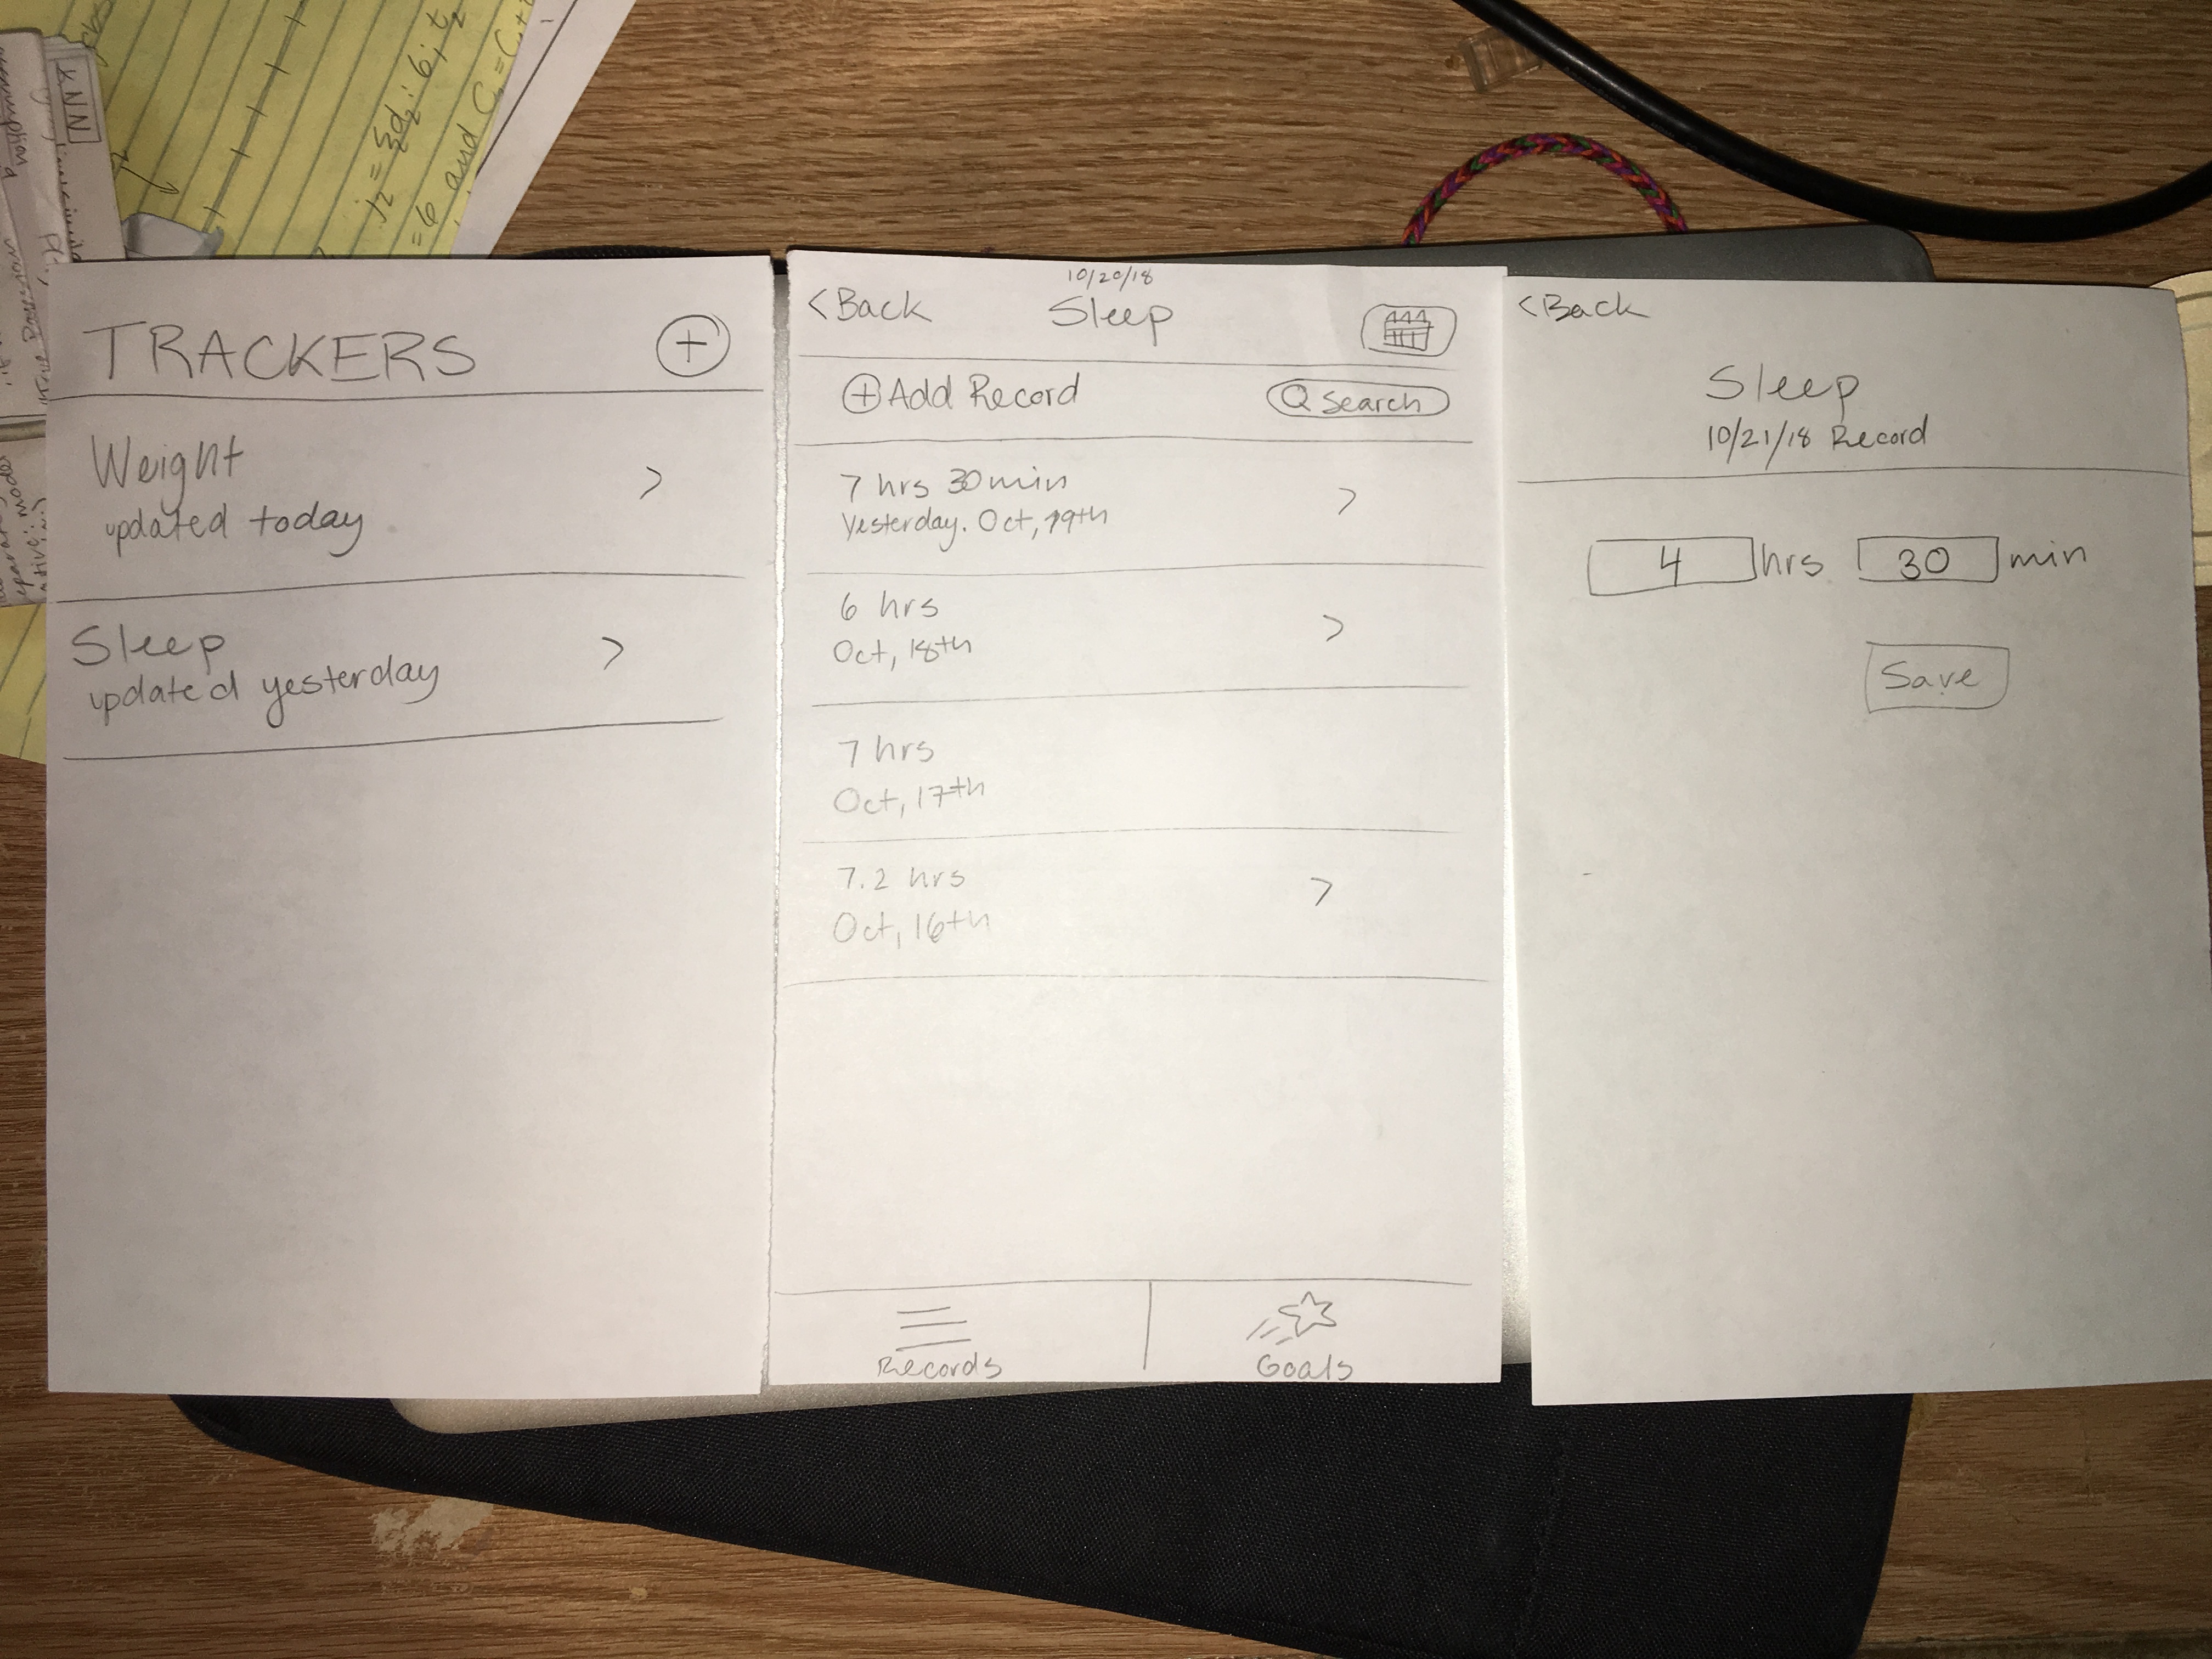 TRACKERS +
Weight >
updated today
Sleep >
updated yesterday
10/20/18
<Back Sleep
+ Add Record Search
7 hrs 30 min >
Yesterday. Oct, 19th
6 hrs >
Oct, 18th
7 hrs
Oct, 17th
7.2 hrs >
Oct, 16th
Records Goals
<Back
Sleep
10/21/18 Record
4 hrs 30 min
Save
KNN
= 6 and